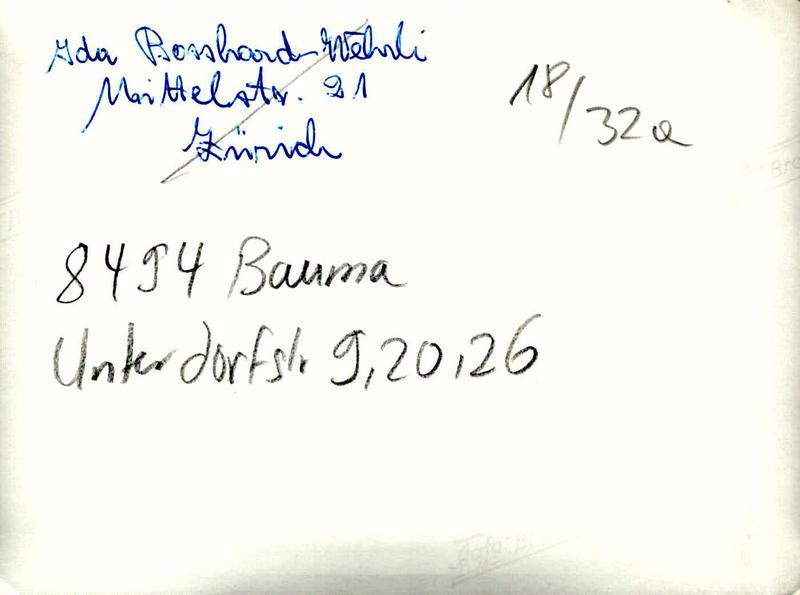 Ida Bosshard-Wehrli
Mittelstr. 21
Zürich
18/32a
8494 Bauma
Unterdorfstr 9,20,26